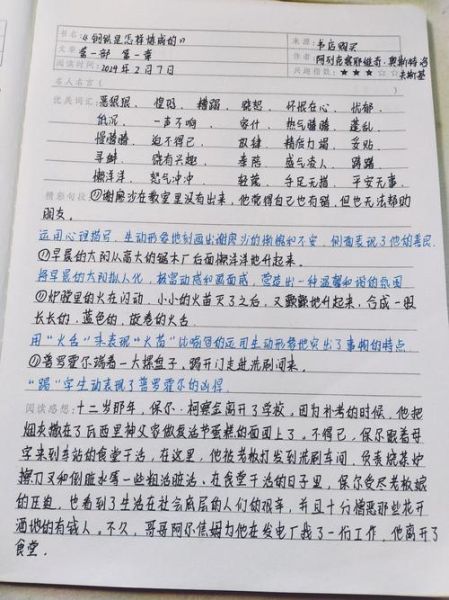 书名:《钢铁是怎样炼成的》 来源:书店购买
文章 第一部 第一章 作者:阿列克塞耶维奇·奥斯特洛夫斯基
阅读时间:2024年2月7日 兴趣指数:★★★☆
名人名言( )
优美词汇:恶狠狠、惶恐、糟蹋、骁恕、怀恨在心、忧郁、
低沉、一声不响、家什、热气腾腾、蓬乱、
慢腾腾、迫不得已、奴隶、精疲力竭、妥贴
寻衅、饶有兴趣、委陪、盛气凌人、蹐踌、
懒洋洋、怒气冲冲、轻蔑、手足无措、平安无事.
精彩句段①谢廖沙在教室里没有出来,他觉得自己也有错,但也无法帮助
朋友.
运用心理描写,生动形象地刻画出谢廖沙的懊恼和不安,侧面表现了他的善良.
①早晨的太阳从高大的锯木厂后面懒洋洋地升起来.
将早晨的太阳拟人化,极富动感和画面感,营造出一种温馨和谐的氛围
②炉膛里的火在闪动,小小的火苗灭了之后,又颤颤地升起来,合成一股
长长的、蓝色的、旋卷的火舌.
用“火舌”来表现“火苗”比喻句的运用生动形象地突出了事物的特点
①普罗霍尔端着一大摞盘子,踢开门走进洗刷间来.
“踢”字生动表现了普罗霍尔的凶悍.
阅读感想:十二岁那年,保尔·柯察金离开了学校,因为补考的时候,他把
烟灰撒在了瓦西里神父家做复活节蛋糕的面团上了.不得已,保尔跟着母
亲来到车站的食堂干活,在这里,他被老板打发到洗刷车间,负责烧茶炉
擦刀叉和倒脏水等一些粗活脏活.在食堂干活的日子里,保尔受尽老板娘
的压迫,也看到了生活在社会底层的人们的艰辛,并且十分憎恶那些花天
酒地的有钱人.不久,哥哥阿尔焦姆为他在发电厂找了一份工作,他离开了
食堂.